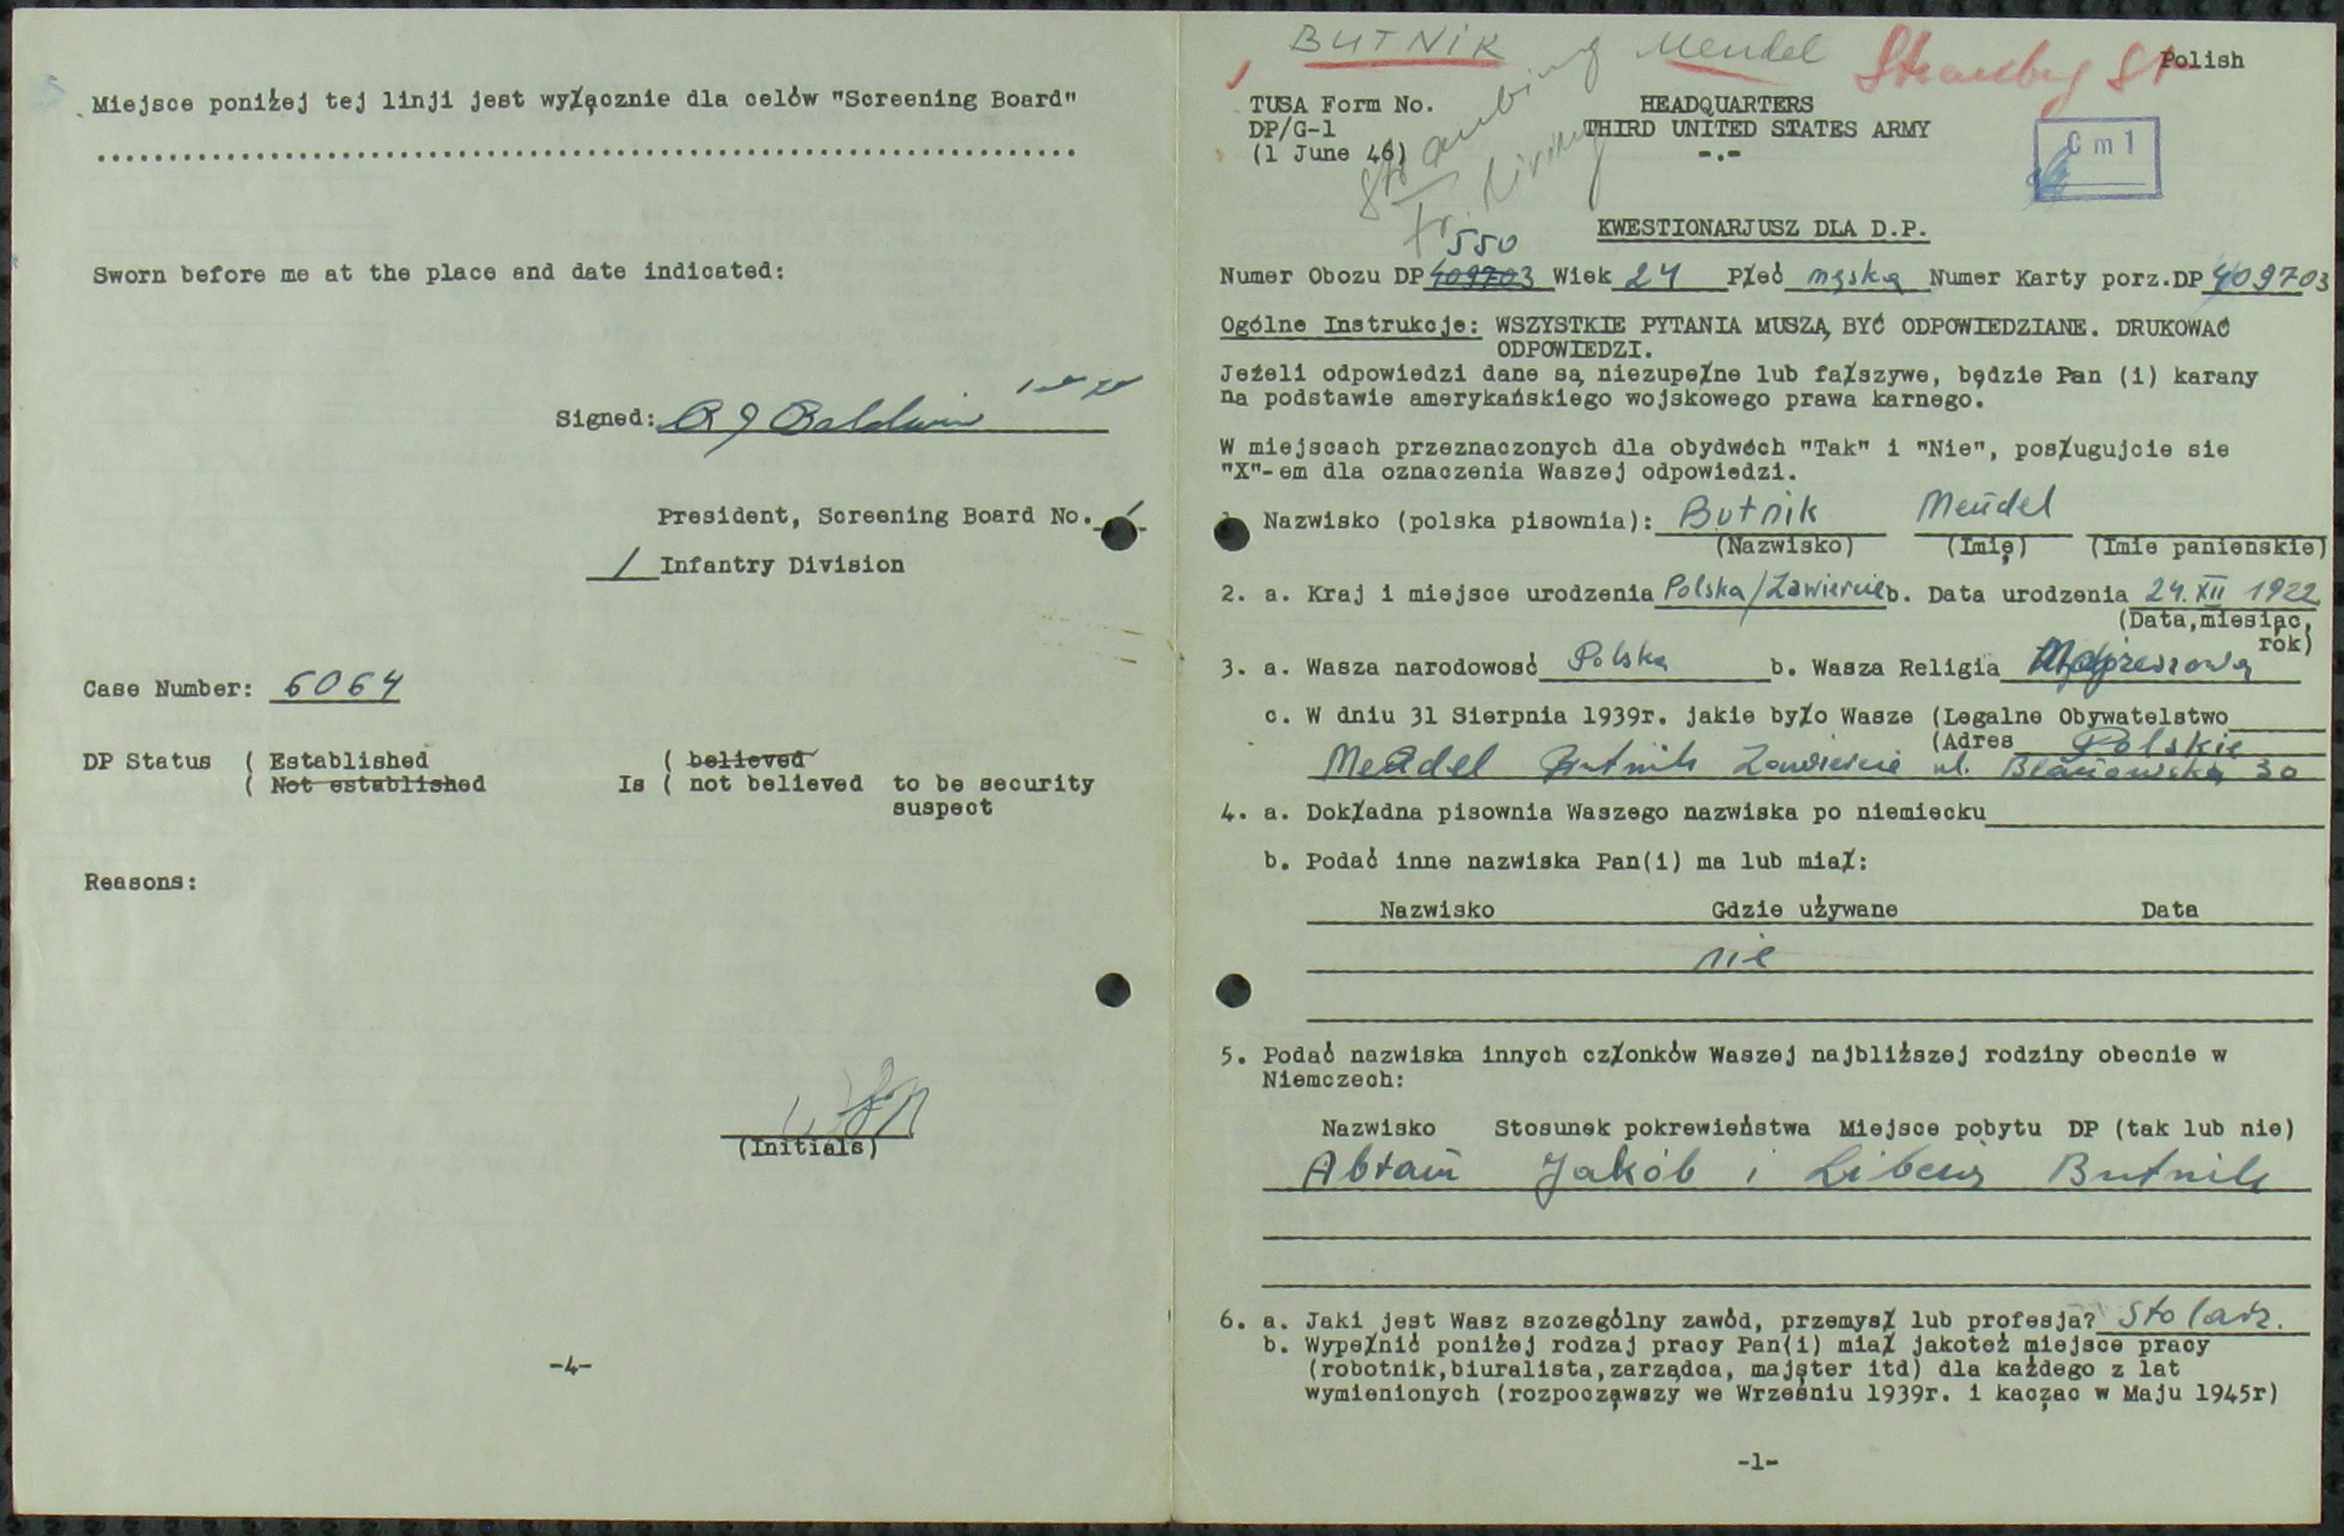 Miejsce poniżej tej linji jest wyłącznie dla celów "Screening Board"
Sworn before me at the place and date indicated:
Signed:
President, Screening Board No. 1
1 Infantry Division
Case Number: 6064
DP Status ( Established ( believed
( Not established Is ( not believed to be security
suspect
Reasons:
(Initials)
-4-
BUTNIK Mendel
Polish
Straubing
TUSA Form No. HEADQUARTERS
DP/G-1 THIRD UNITED STATES ARMY
(1 June 46) -.-
Cm1
KWESTIONARJUSZ DLA D.P.
550
Numer Obozu DP 409703 Wiek 24 Płeć męska Numer Karty porz.DP 409703
Ogólne Instrukcje: WSZYSTKIE PYTANIA MUSZĄ BYĆ ODPOWIEDZIANE. DRUKOWAĆ
ODPOWIEDZI.
Jeżeli odpowiedzi dane są niezupełne lub fałszywe, będzie Pan (i) karany
na podstawie amerykańskiego wojskowego prawa karnego.
W miejscach przeznaczonych dla obydwóch "Tak" i "Nie", posługujcie sie
"X"-em dla oznaczenia Waszej odpowiedzi.
1. Nazwisko (polska pisownia): Butnik Mendel
(Nazwisko) (Imię) (Imie panienskie)
2. a. Kraj i miejsce urodzenia Polska/Zawiercie b. Data urodzenia 24. XII 1922
(Data,miesiąc,
rok)
3. a. Wasza narodowosć Polska b. Wasza Religia Mojżeszowa
c. W dniu 31 Sierpnia 1939r. jakie było Wasze (Legalne Obywatelstwo
(Adres Polskie
Mendel Butnik Zawiercie ul. Blanowska 30
4. a. Dokładna pisownia Waszego nazwiska po niemiecku
b. Podać inne nazwiska Pan(i) ma lub miał:
Nazwisko Gdzie używane Data
nie
5. Podać nazwiska innych członków Waszej najbliższej rodziny obecnie w
Niemczech:
Nazwisko Stosunek pokrewieństwa Miejsce pobytu DP (tak lub nie)
Abram Jakób i Butnik
6. a. Jaki jest Wasz szczególny zawód, przemysł lub profesja? Stolarz.
b. Wypełnić poniżej rodzaj pracy Pan(i) miał jakoteż miejsce pracy
(robotnik,biuralista,zarządca, majster itd) dla każdego z lat
wymienionych (rozpocząwszy we Wrześniu 1939r. i kacząc w Maju 1945r)
-1-